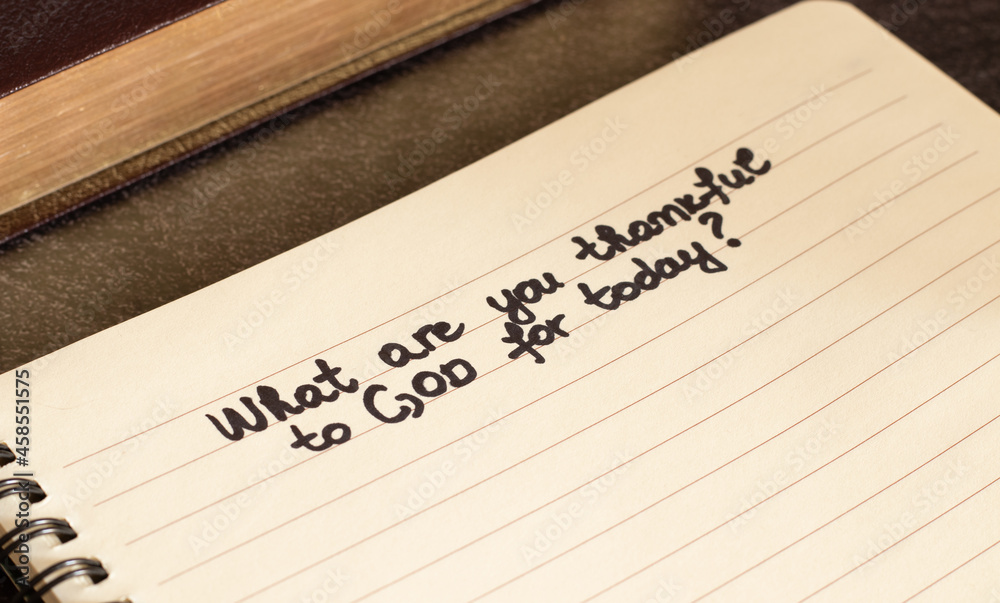 What are you thankful
to GOD for today?
Adobe Stock | #458551575